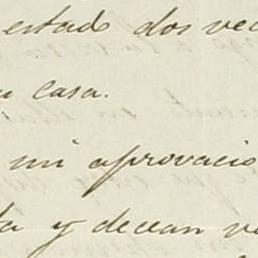 estado dos vec
casa.
mi aprovacio
y decean v